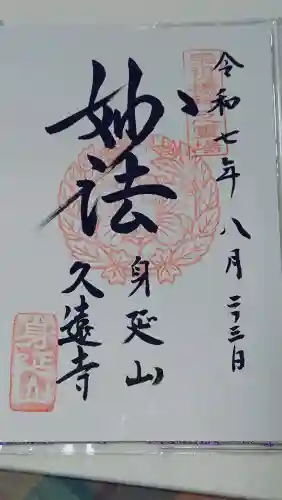 令和七年八月二十三日
妙法
身延山
久遠寺
身延山